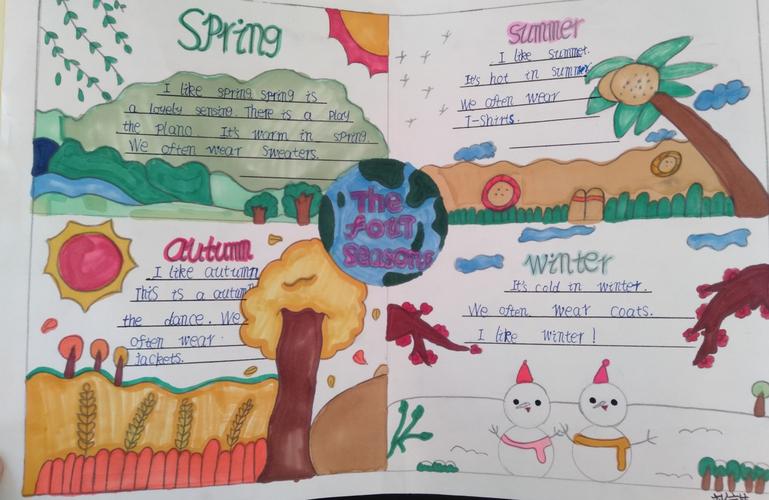 Spring
I like spring spring is
a lovely sensing. There is a play
the piano. It's warm in spring.
We often wear sweaters.
summer
I like summer.
It's hot in summer
We often wear
T-Shirts.
The
four
Seasons
autumn
I like autumn
This is a autumn
the dance. We
often wear
jackets.
winter
It's cold in winter.
We often wear coats.
I like winter!